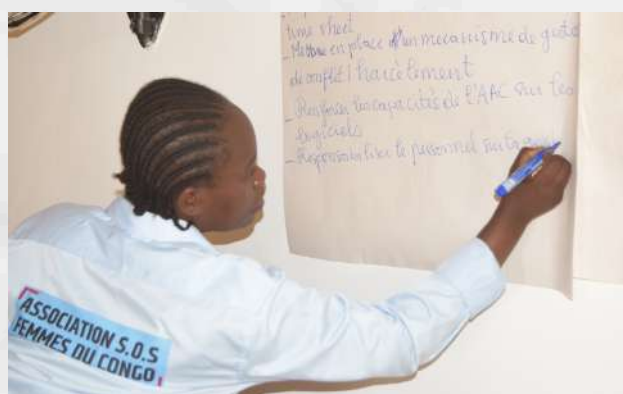 time sheet
- Mettre en place d'un mecanisme de gestio
de conflit / harcèlement
- Renforcer les capacités de l'AAC sur les
logiciels
- Responsabiliser le personnel sur la
ASSOCIATION S.O.S
FEMMES DU CONGO